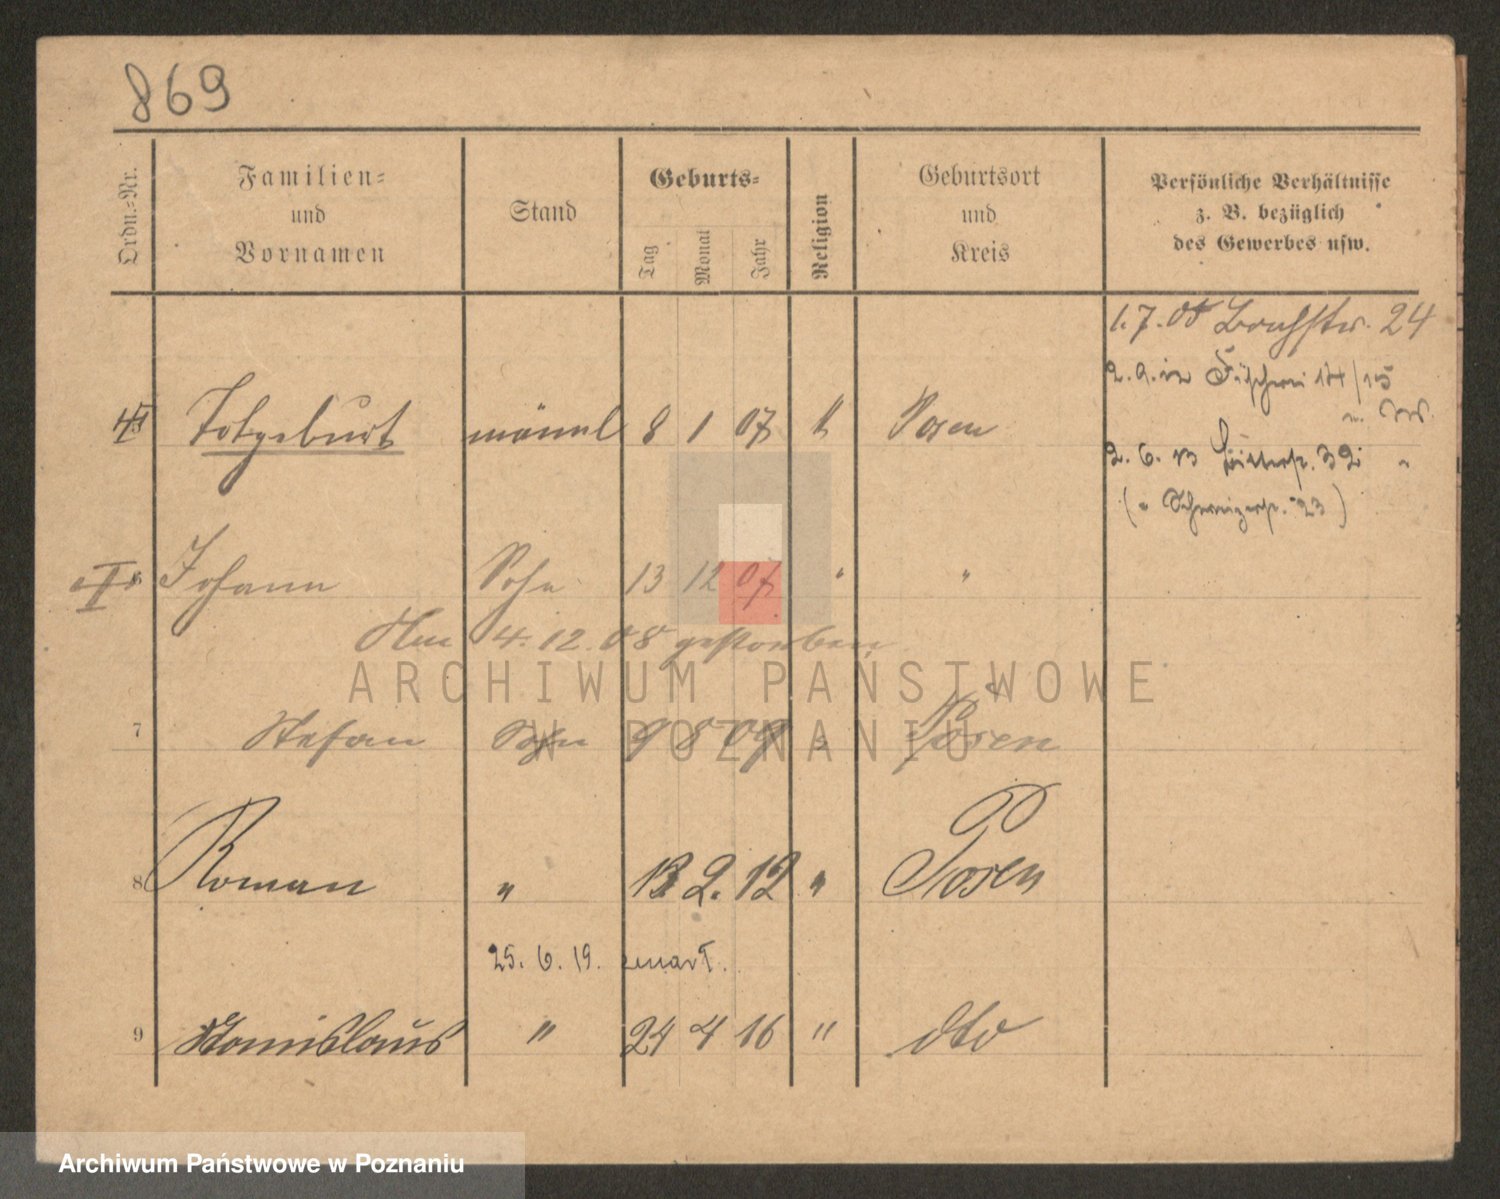 869
Ordn.-Nr.
Familien-
und
Vornamen
Stand
Geburts-
Tag Monat Jahr
Religion
Geburtsort
und
Kreis
Persönliche Verhältnisse
z. B. bezüglich
des Gewerbes usw.
1. 7. 08 24
2. 9. 12 Fischerei 14/15
Totgeburt männl 8 1 07 k Posen
2. 6. 13 32 "
( " 23 )
6 Johann Sohn 13 12 07 " "
Am 4. 12. 08 gestorben
ARCHIWUM PAŃSTWOWE
7 Stefan Sohn 9 8 09 " Posen
W POZNANIU
8 Roman " 13 2. 12 " Posen
25. 6. 19.
9 Stanislaus " 24 4 16 " dto
Archiwum Państwowe w Poznaniu